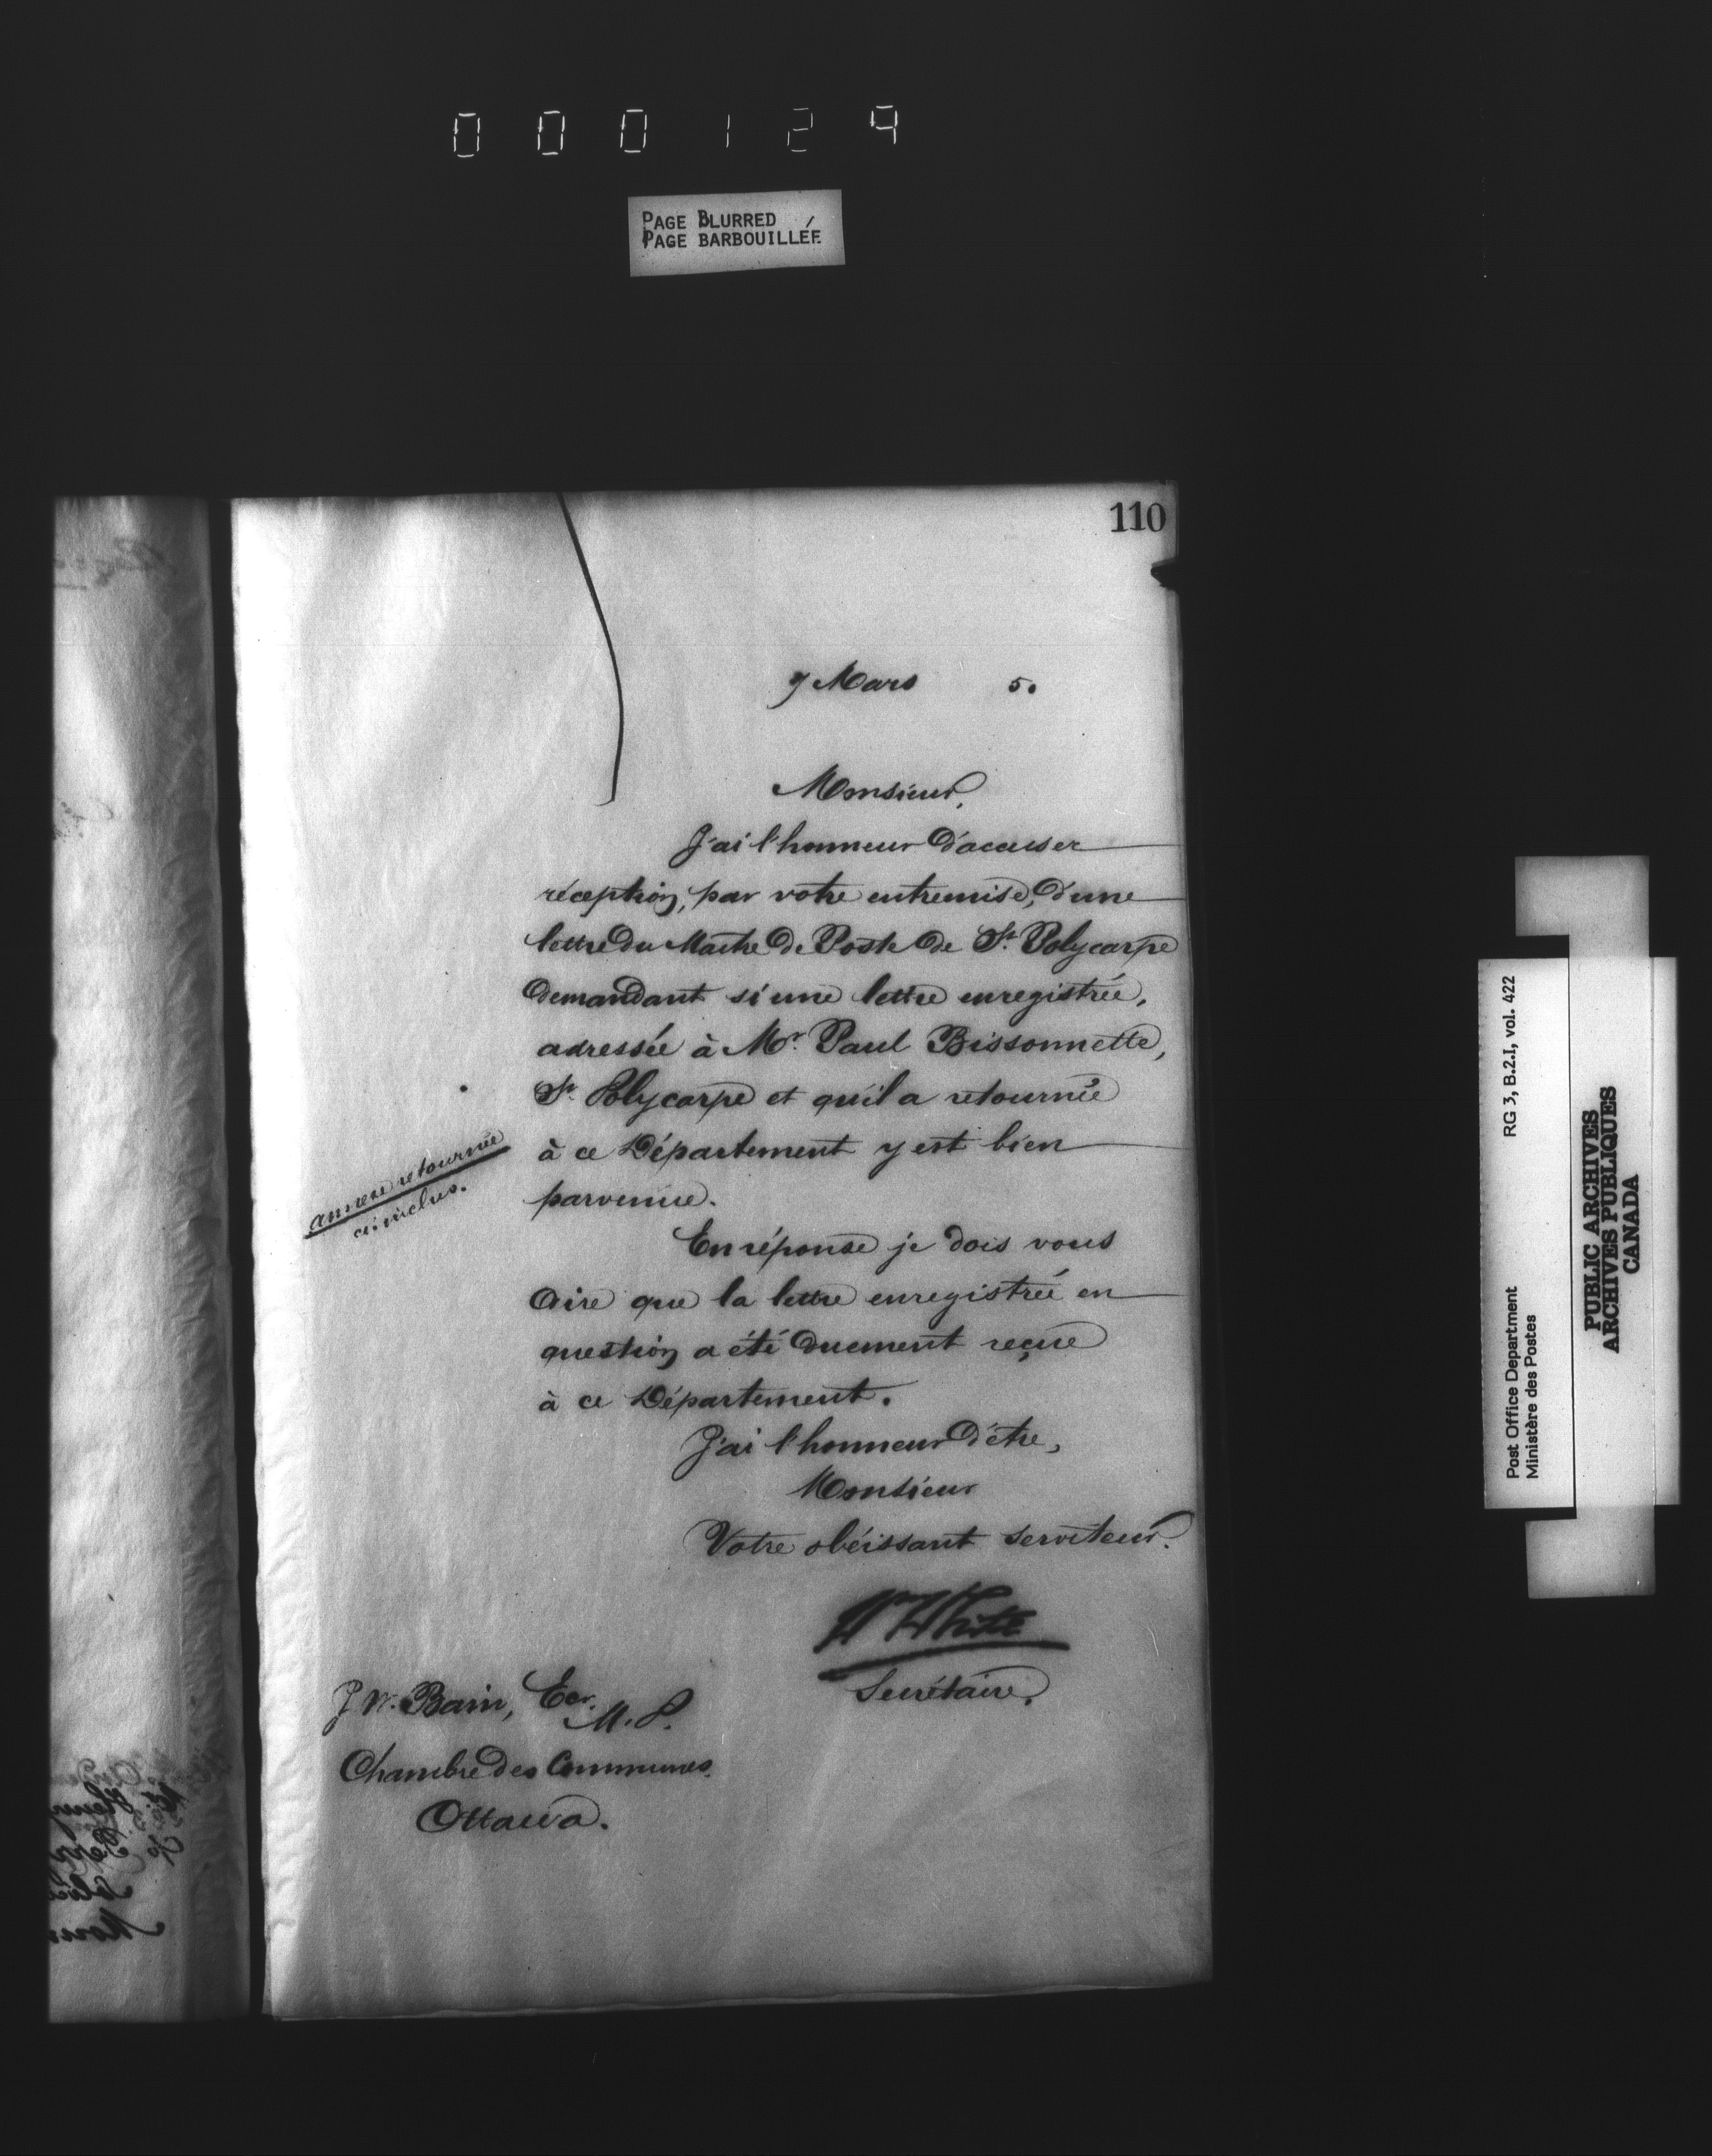 000124
PAGE BLURRED
PAGE BARBOUILLÉE
110
7 Mars 5.
Monsieur,
J'ai l'honneur d'accuser
réception, par votre entremise, d'une
lettre du Maitre de Poste de St. Polycarpe
demandant si une lettre enregistrée,
adressée à Mr. Paul Bissonnette,
St. Polycarpe et qu'il a retournée
à ce Département y est bien
parvenue.
annexe retournée
ci-inclus.
En réponse je dois vous
dire que la lettre enregistrée en
question a été duement reçue
à ce Département.
J'ai l'honneur d'être,
Monsieur
Votre obéissant serviteur.
W White
Secrétaire.
J W. Bain, Ecr. M. P.
Chambre des Communes.
Ottawa.
RG 3, B.2.I, vol. 422
Post Office Department
Ministère des Postes
PUBLIC ARCHIVES
ARCHIVES PUBLIQUES
CANADA